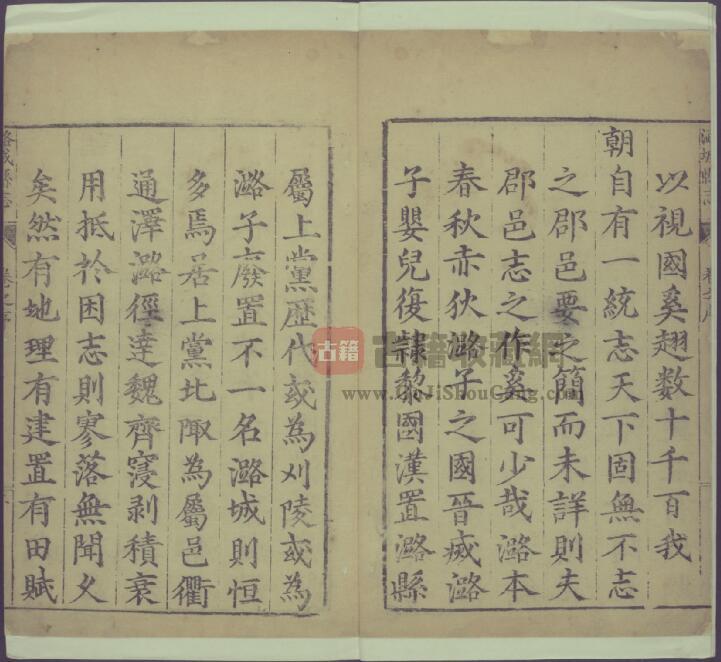 以視國奚翅数十千百我
朝自有一統志天下固無不志
之郡邑要之簡而未詳則夫
郡邑志之作奚可少哉潞本
春秋赤狄潞子之國晉滅潞
子嬰兒復隸黎國漢置潞縣
屬上黨歷代或為刈陵或為
潞子廢置不一名潞城則恒
多焉居上黨北陬為屬邑衢
通澤潞徑達魏齊寖剥積衰
用抵於困志則寥落無聞久
矣然有地理有建置有田賦
潞城縣志
卷之序
古籍
古籍收藏網
GuJiShouCang.com